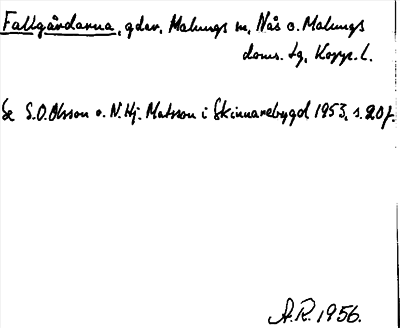 Fallgårdarna, gdar, Malungs sn, Nås o. Malungs
doms. tg, Kopp. l.
Se S.O. Olsson o. N. Hj. Matsson i Skinnarebygd 1953, s. 20 f.
A.R. 1956.